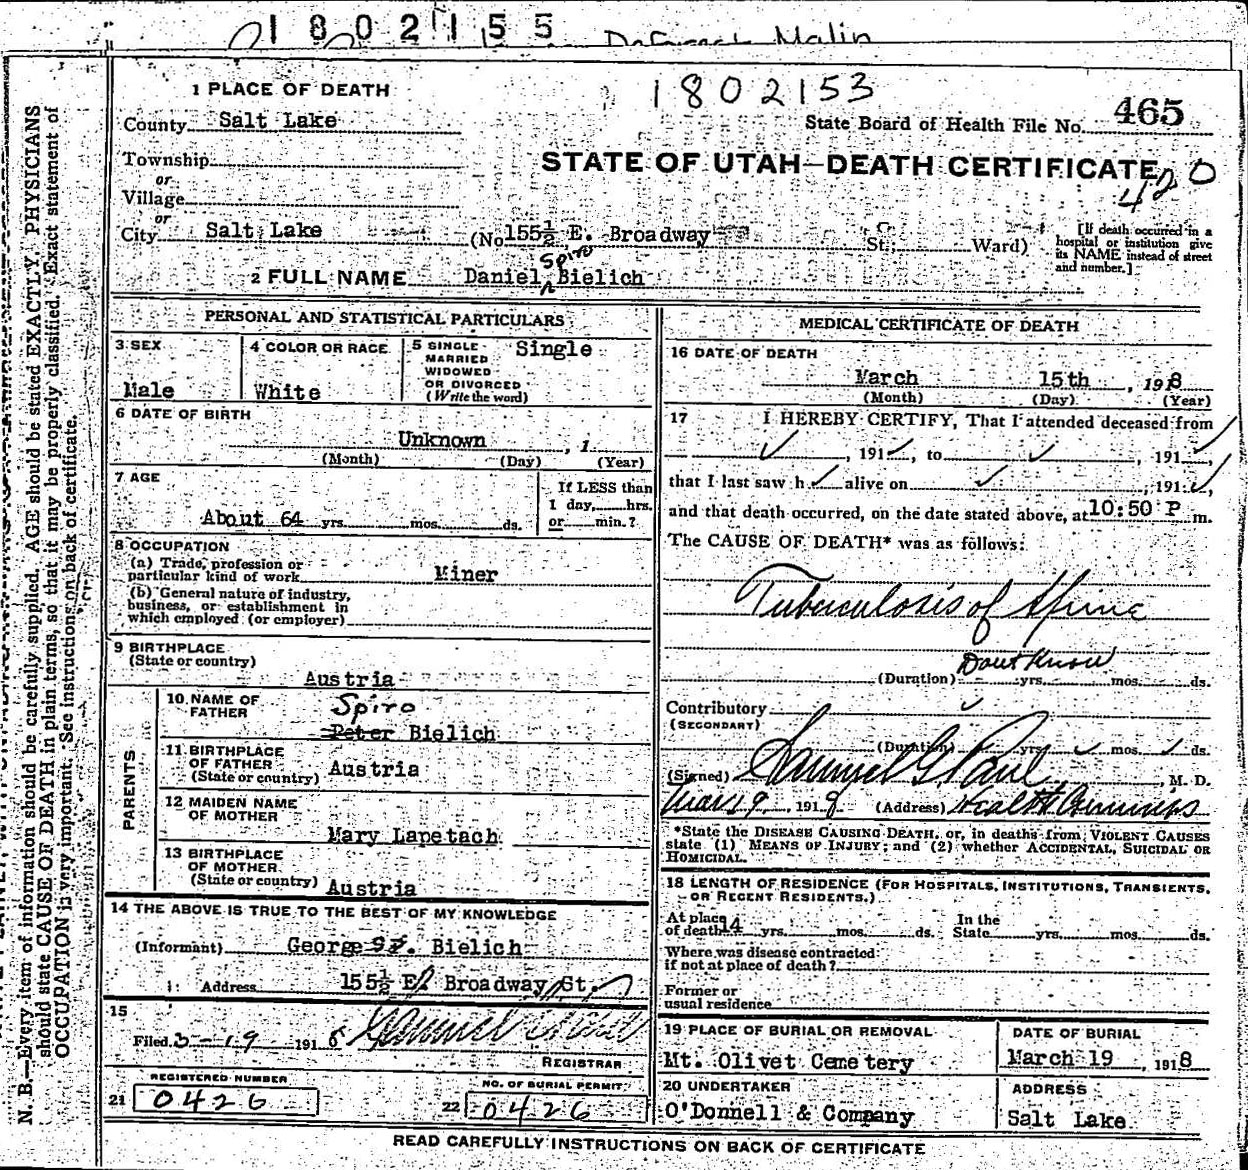 1802155
DeForrest Malin
1802153
1 PLACE OF DEATH
County Salt Lake
State Board of Health File No. 465
Township
or
Village
or
City Salt Lake
STATE OF UTAH—DEATH CERTIFICATE
420
(No 155½ E. Broadway St. Ward)
[If death occurred in a hospital or institution give its NAME instead of street and number.]
Spiro
2 FULL NAME Daniel ^ Bielich
PERSONAL AND STATISTICAL PARTICULARS
3 SEX
Male
4 COLOR OR RACE
White
5 SINGLE MARRIED WIDOWED OR DIVORCED (Write the word)
Single
6 DATE OF BIRTH
Unknown , 1
(Month) (Day) (Year)
7 AGE
About 64 yrs. mos. ds.
If LESS than
1 day, hrs.
or min.?
8 OCCUPATION
(a) Trade, profession or
particular kind of work Miner
(b) General nature of industry,
business, or establishment in
which employed (or employer)
9 BIRTHPLACE
(State or country)
Austria
PARENTS
10 NAME OF FATHER
Spiro
Peter Bielich
11 BIRTHPLACE OF FATHER (State or country)
Austria
12 MAIDEN NAME OF MOTHER
Mary Lapetach
13 BIRTHPLACE OF MOTHER (State or country)
Austria
14 THE ABOVE IS TRUE TO THE BEST OF MY KNOWLEDGE
(Informant) George Bielich
Address 155½ E. Broadway St.
15
Filed 3-19 1918
REGISTRAR
REGISTERED NUMBER
21 0426
NO. OF BURIAL PERMIT
22 0426
MEDICAL CERTIFICATE OF DEATH
16 DATE OF DEATH
March 15th , 1918
(Month) (Day) (Year)
17 I HEREBY CERTIFY, That I attended deceased from
, 191 , to , 191 ,
that I last saw h alive on , 191 ,
and that death occurred, on the date stated above, at 10:50 P m.
The CAUSE OF DEATH* was as follows:
Tuberculosis of Spine
Dont Know
(Duration) yrs. mos. ds.
Contributory
(SECONDARY)
(Duration) yrs. mos. ds.
(Signed) Samuel G. Paul M. D.
Mar 19, 1918 (Address) Health Commrs
*State the DISEASE CAUSING DEATH, or, in deaths from VIOLENT CAUSES
state (1) MEANS OF INJURY; and (2) whether ACCIDENTAL, SUICIDAL OR
HOMICIDAL.
18 LENGTH OF RESIDENCE (FOR HOSPITALS, INSTITUTIONS, TRANSIENTS,
OR RECENT RESIDENTS.)
At place of death 14 yrs. mos. ds. In the State yrs. mos. ds.
Where was disease contracted
if not at place of death?
Former or
usual residence
19 PLACE OF BURIAL OR REMOVAL
Mt. Olivet Cemetery
DATE OF BURIAL
March 19 , 1918
20 UNDERTAKER
O'Donnell & Company
ADDRESS
Salt Lake
READ CAREFULLY INSTRUCTIONS ON BACK OF CERTIFICATE
N. B—Every item of information should be carefully supplied. AGE should be stated EXACTLY. PHYSICIANS
should state CAUSE OF DEATH in plain terms, so that it may be properly classified. Exact statement of
OCCUPATION is very important. See instructions on back of certificate.